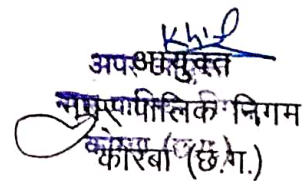 अपर आयुक्त
नगर पालिक निगम
कोरबा (छ.ग.)